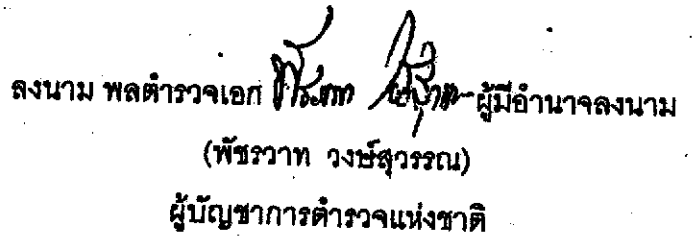 ลงนาม พลตำรวจเอก ผู้มีอำนาจลงนาม
(พัชรวาท วงษ์สุวรรณ)
ผู้บัญชาการตำรวจแห่งชาติ